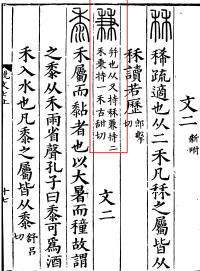 文二 新附
秝 稀疏適也从二禾凡秝之屬皆从
秝讀若歷 郎擊切
兼 幷也从又持秝兼持二
禾秉持一禾古甜切
文二
黍 禾屬而黏者也以大暑而種故謂
之黍从禾雨省聲孔子曰黍可爲酒
禾入水也凡黍之屬皆从黍 舒呂切
說文七上 十七